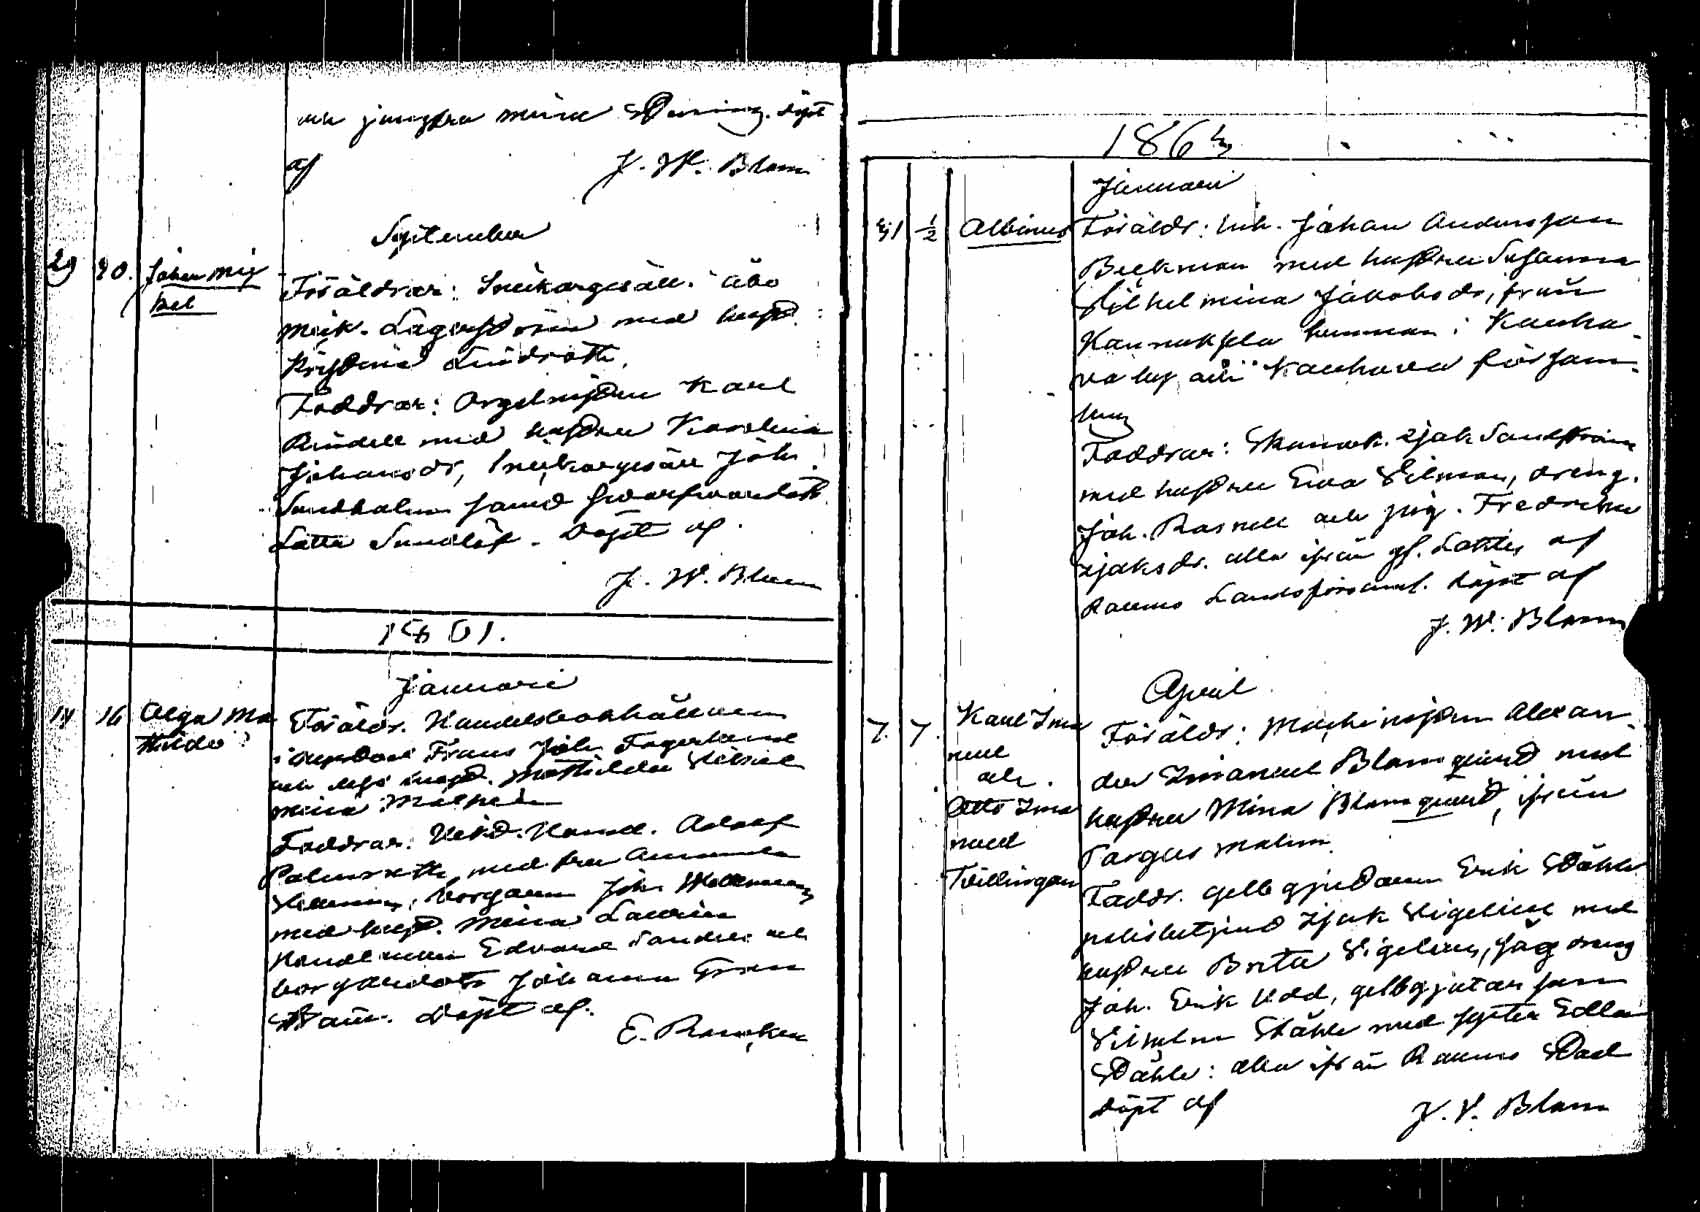 och jungfru Mina Döpt
af J. W. Blom
September
29 30. Johan Mi
kel
Föräldrar: Snickargesäll. i Åbo
Mik. Lagerström med hust.
Kristina Lindroth.
Faddrar: Orgelnisten Karl
Rindell med hustru Karolina
Johansdr, Snickargesäll Joh.
Sundholm samt
Lotta Sundlöf. Döpt af
J. W. Blom
1861.
Januari
14 16 Olga Ma
thilda
Föräldr. Handelsbokhållaren
i Frans Joh. Fagerlund
och dess hust. Mathilda Vilhel
mina
Faddrar: Vikt. Hand. Adolf
Palmroth med fru Amanda
borgaren Joh.
med hust. Mina Laurén
Handlanden Edvard Sandell och
borgaredottr Johanna Grön
Döpt af.
E.
1863
Januari
31 1/2 Albinus
Föräldr: Inh. Johan Andersson
Beckman med hustru Susanna
Vilhelmina Jakobsdr, från
hemman i Kauha
va by och Kauhava försam
ling
Faddrar: Skomak. Isak Sandström
med hustru Eva Vilman, dreng.
Joh. Rasnell och pig. Fredrika
Isaksdr. alla ifrån af
Raumo Landsförsaml. Döpt af
J. W. Blom
April
7. 7. Karl Ima
nuel
och
Otto Ima
nuel
Tvillingar
Föräldr: Maskinisten Alexan
der Imanuel Blomqvist med
hustru Mina Blomqvist, ifrån
Pargas malm.
Faddr. gelbgjutaren Erik Ståhle
Isak Vigelius med
hustru Brita Vigelius, dreng
Joh. Erik Udd, gelbgjutaren
Vilhelm Ståhle med syster Edla
Ståhle: alla ifrån Raumo Stad
Döpt af
J. V. Blom